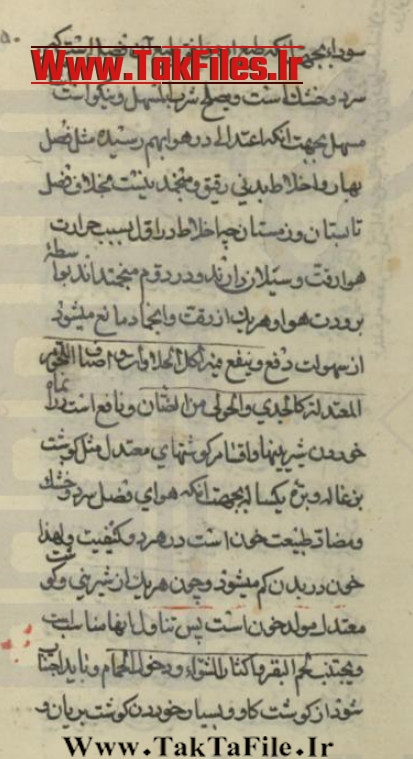 سوداء بجهة انکه طبع
Www.TakFiles.Ir
سرد و خشك است و یصلح شرب المسهل و نیکو است
مسهل بجهت انکه اعتدالی در هوا بهم رسیده مثل فصل
بهار و اخلاط بدنی رقیق و منجمد نیست بخلاف فصل
تابستان و زمستان چه اخلاط در اول بسبب حرارت
هوا رقت و سیلان دارند و در دوم منجمدند بواسطهٔ
برودت هوا و هر یك از رقت و انجماد مانع میشود
از سهولت دفع و ینفع فیه اکل الحلاوات و اصناف اللحوم
المعتدلة کالجدي والحولي من الضان و نافع است در این ماه
خوردن شیرینیها و اقسام گوشتهای معتدل مثل گوشت
بزغاله و برّهٔ یکساله بجهت انکه هوای فصل سرد و خشك
و مضاد طبیعت خون است در هر دو کیفیت و لهذا
خون در بدن کم میشود و چون هر یك از شیرینی و گوشت
معتدل مولد خون است پس تناول انها مناسب است
و یجتنب لحم البقر و اکثار الشواء و دخول الحمام و باید اجتناب
شود از گوشت گاو و بسیار خوردن گوشت بریان و
Www.TakTaFile.Ir